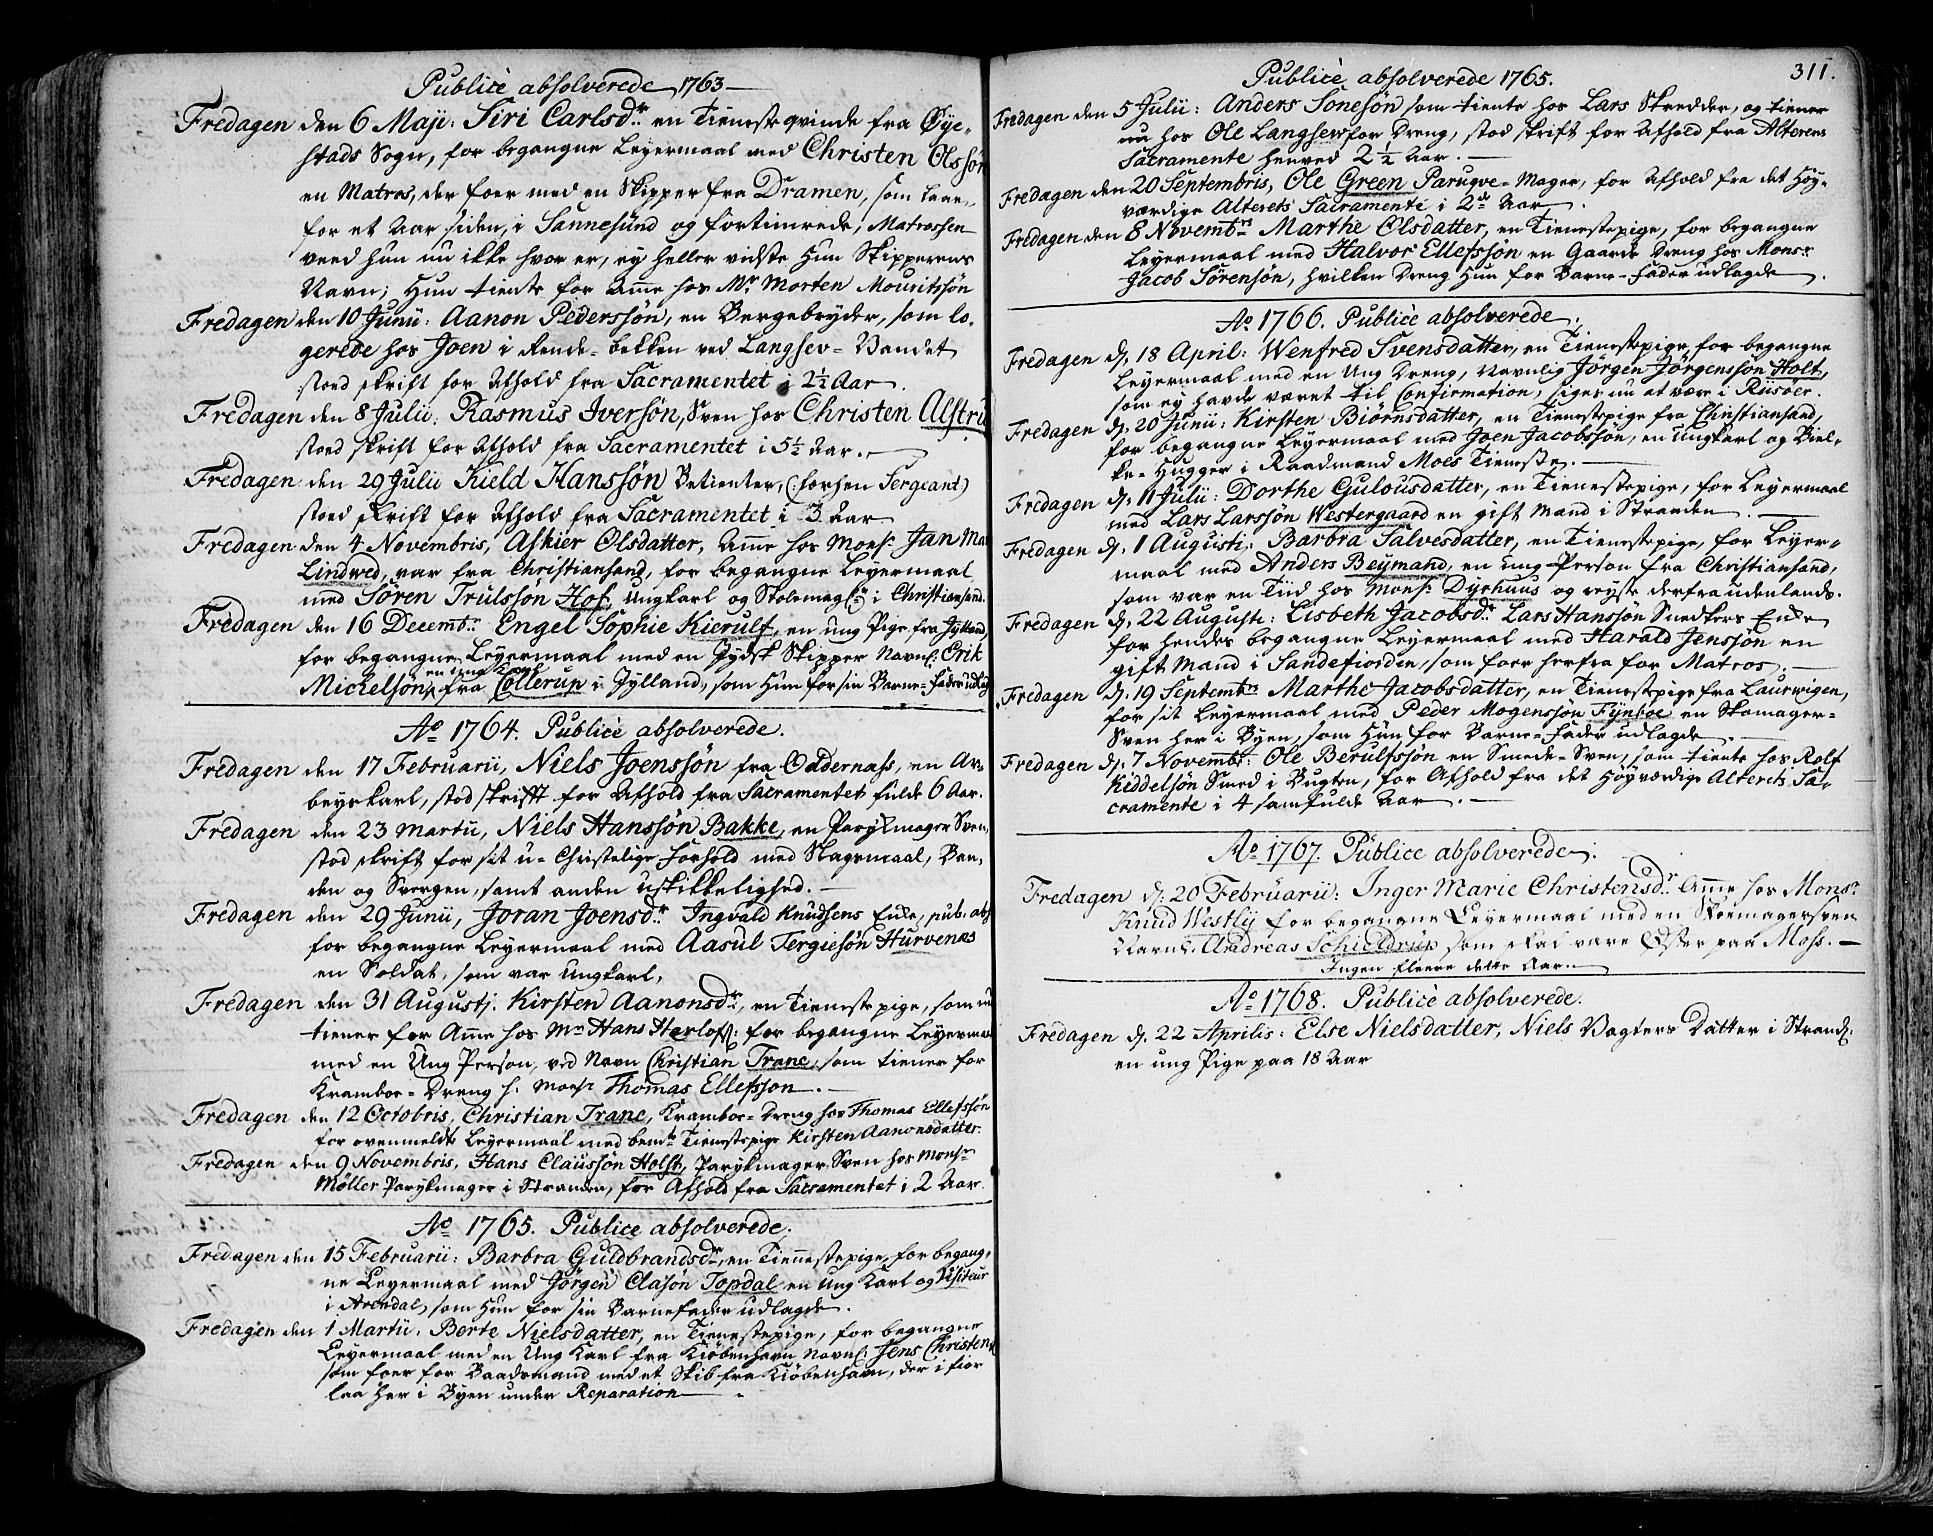 Publicè absolverede 1763
Fredagen den 6 Maji: Siri Carlsdr en Tieneste qvinde fra Øye-
stads Sogn, for begangne Leyermaal med Christen Olssøn
en Matros, der foer med en Skipper fra Dramen, som laae
for et Aar siden, i Sannesund og fortimrede, Matrossen
veed hun nu ikke hvor er, ey heller vidste Hun Skipperens
Navn; Hun tiente for Amme hos Mr Morten Mouritssøn
Fredagen den 10 Junii: Aanon Pederssøn, en Bergebryder, som lo-
gerede hos Joen i Rende-bekken ved Langsev-Vandet
stoed skrift for Afhold fra Sacramentet i 2½ Aar.
Fredagen den 8 Julii: Rasmus Iversøn, Sven hos Christen Alstrup
stoed skrift for Afhold fra Sacramentet i 5½ Aar.
Fredagen den 29 Julii Kield Hanssøn Betienter, (: forhen Sergeant)
stoed skrift for Afhold fra Sacramentet i 3 Aar
Fredagen den 4 Novembris, Askier Olsdatter, Amme hos Monsr Jan
Lindwed, var fra Christiansand, for begangne Leyermaal
med Søren Trulssøn Hof, Ungkarl og i Christiansand.
Fredagen den 16 Decembr: Engel Sophie Kierulf, en ung Pige fra Jylland,
for begangne Leyermaal med en Jydsk Skipper Navnl: Erik
Michelsøn, en ung Karl fra Collerup i Jylland, som Hun for sin Barne-Fader udlagde
Ao 1764. Publicè absolverede.
Fredagen den 17 Februarii, Niels Joenssøn fra Oddernæss, en Ar-
beyskarl, stod skrifft for Afhold fra Sacramentet fulde 6 Aar.
Fredagen den 23 Martii, Niels Hanssøn Bakke, en Parykmager Sven,
stod skrift for sit u-Christelige Forhold med Slagsmaal, Ban-
den og Svergen, samt anden uskikkelighed.
Fredagen den 29 Junii, Joran Joensdr Ingvald Knudsens Enke, pub: abs
for begangne Leyermaal med Aasul Tergiesøn Hurvenes
en Soldat, som var ungkarl,
Fredagen den 31 Augustj. Kirsten Aanonsdr, en Tienestepige, som nu
tiener for Amme hos Mr Hans Herloss: for begangne Leyermaal
med en Ung Person, ved Navn Christian Trane, som tiener for
Kramboe-Dreng h: Monsr Thomas Ellefsson.
Fredagen den 12 Octobris, Christian Trane, Kramboe-Dreng hos Thomas Ellefssøn
for ovenmeldte Leyermaal med bemte Tienestepige Kirsten Aanonsdatter.
Fredagen den 9 Novembris, Hans Claussøn Holst, Parykmager Sven hos Monsr
Møller Parykmager i Stranden, for Afhold fra Sacramentet i 2 Aar.
Ao 1765. Publicè absolverede.
Fredagen den 15 Februarii: Barbra Guldbrandsdr, en Tiennestepige, for begang-
ne Leyermaal med Jørgen Clasøn Topdal en Ung Karl og Visiteur
i Arendal, som Hun for sin Barnefader udlagde.
Fredagen den 1 Martii. Berte Nielsdatter, en Tienestepige, for begangne
Leyermaal med en Ung Karl fra Kiøbenhavn Navnl: Jens Christens
som foer for Baadsmand med et Skib fra Kiøbenhavn, der i fior
laa her i Byen under Reparation
311.
Publicè absolverede 1765.
Fredagen den 5 Julii: Anders Sønesøn som tiente hos Lars Skredder, og tiener
nu hos Ole Langsew for Dreng, stod skrift for Afhold fra Alterens
Sacramente henved 2½ Aar.
Fredagen den 20 Septembris, Ole Green Parugve-Mager, for Afhold fra det Høy-
værdige Alterets Sacramente i 2de Aar.
Fredagen den 8 Novembrs Marthe Olsdatter, en Tienestepige, for begangne
Leyermaal med Halvor Ellefssøn en Gaards Dreng hos Monsr
Jacob Sørensøn, hvilken Dreng Hun for Barne-Fader udlagde.
Ao 1766. Publicè absolverede.
Fredagen d. 18 April: Wenfred Svensdatter, en Tienestepige, for begangne
Leyermaal med en Ung Dreng, Navnlig Jørgen Jørgenssøn Holt,
som ey havde været til Confirmation, siges nu at være i Riisøer.
Fredagen d. 20 Junii: Kirsten Biørnsdatter, en Tienestepige fra Christiansand,
for begangne Leyermaal med Joen Jacobssøn, en ungkarl og Biel-
ke-Hugger i Raadmand Moes Tieneste.
Fredagen d. 11 Julii: Dorthe Gulousdatter, en Tienestepige, for Leyermaal
med Lars Larssøn Westergaard en gift Mand i Stranden.
Fredagen d. 1 Augusti: Barbra Salvesdatter, en Tienestepige, for Leyer-
maal med Anders Beymand, en ung Person fra Christiansand,
som var en Tiid hos Monsr Dyrhuus og reyste derfra udenlands.
Fredagen d. 22 Augusti: Lisbeth Jacobsdr Lars Hanssøn Snedkers Enke
for hendes begangne Leyermaal med Harald Jenssøn en
gift Mand i Sandefiorden, som foer herfra for Matros.
Fredagen d. 19 Septembrs Marthe Jacobsdatter, en Tienestepige fra Laurwigen,
for sit Leyermaal med Peder Mogenssøn Fynboe en Skomager-
Sven her i Byen, som Hun for Barne-Fader udlagde.
Fredagen d. 7 Novembr: Ole Berulfssøn en Smede-Sven, som tiente hos Rolf
Kiddelsøn Smed i Bugten, for Afhold fra det Høyværdige Alterets Sa-
cramente i 4 samfulde Aar.
Ao 1767. Publicè absolverede.
Fredagen d. 20 Februarii: Inger Marie Christensdr Amme hos Monsr
Knud Westlij for begangne Leyermaal med en Skoemagersven
Navnl. Andreas Schieldrup som skal være paa Moss.
Ingen fleere dette Aar.
Ao 1768. Publicè absolverede.
Fredagen d. 22 Aprilis: Else Nielsdatter, Niels Vagters Datter i Strand:
en ung Pige paa 18 Aar